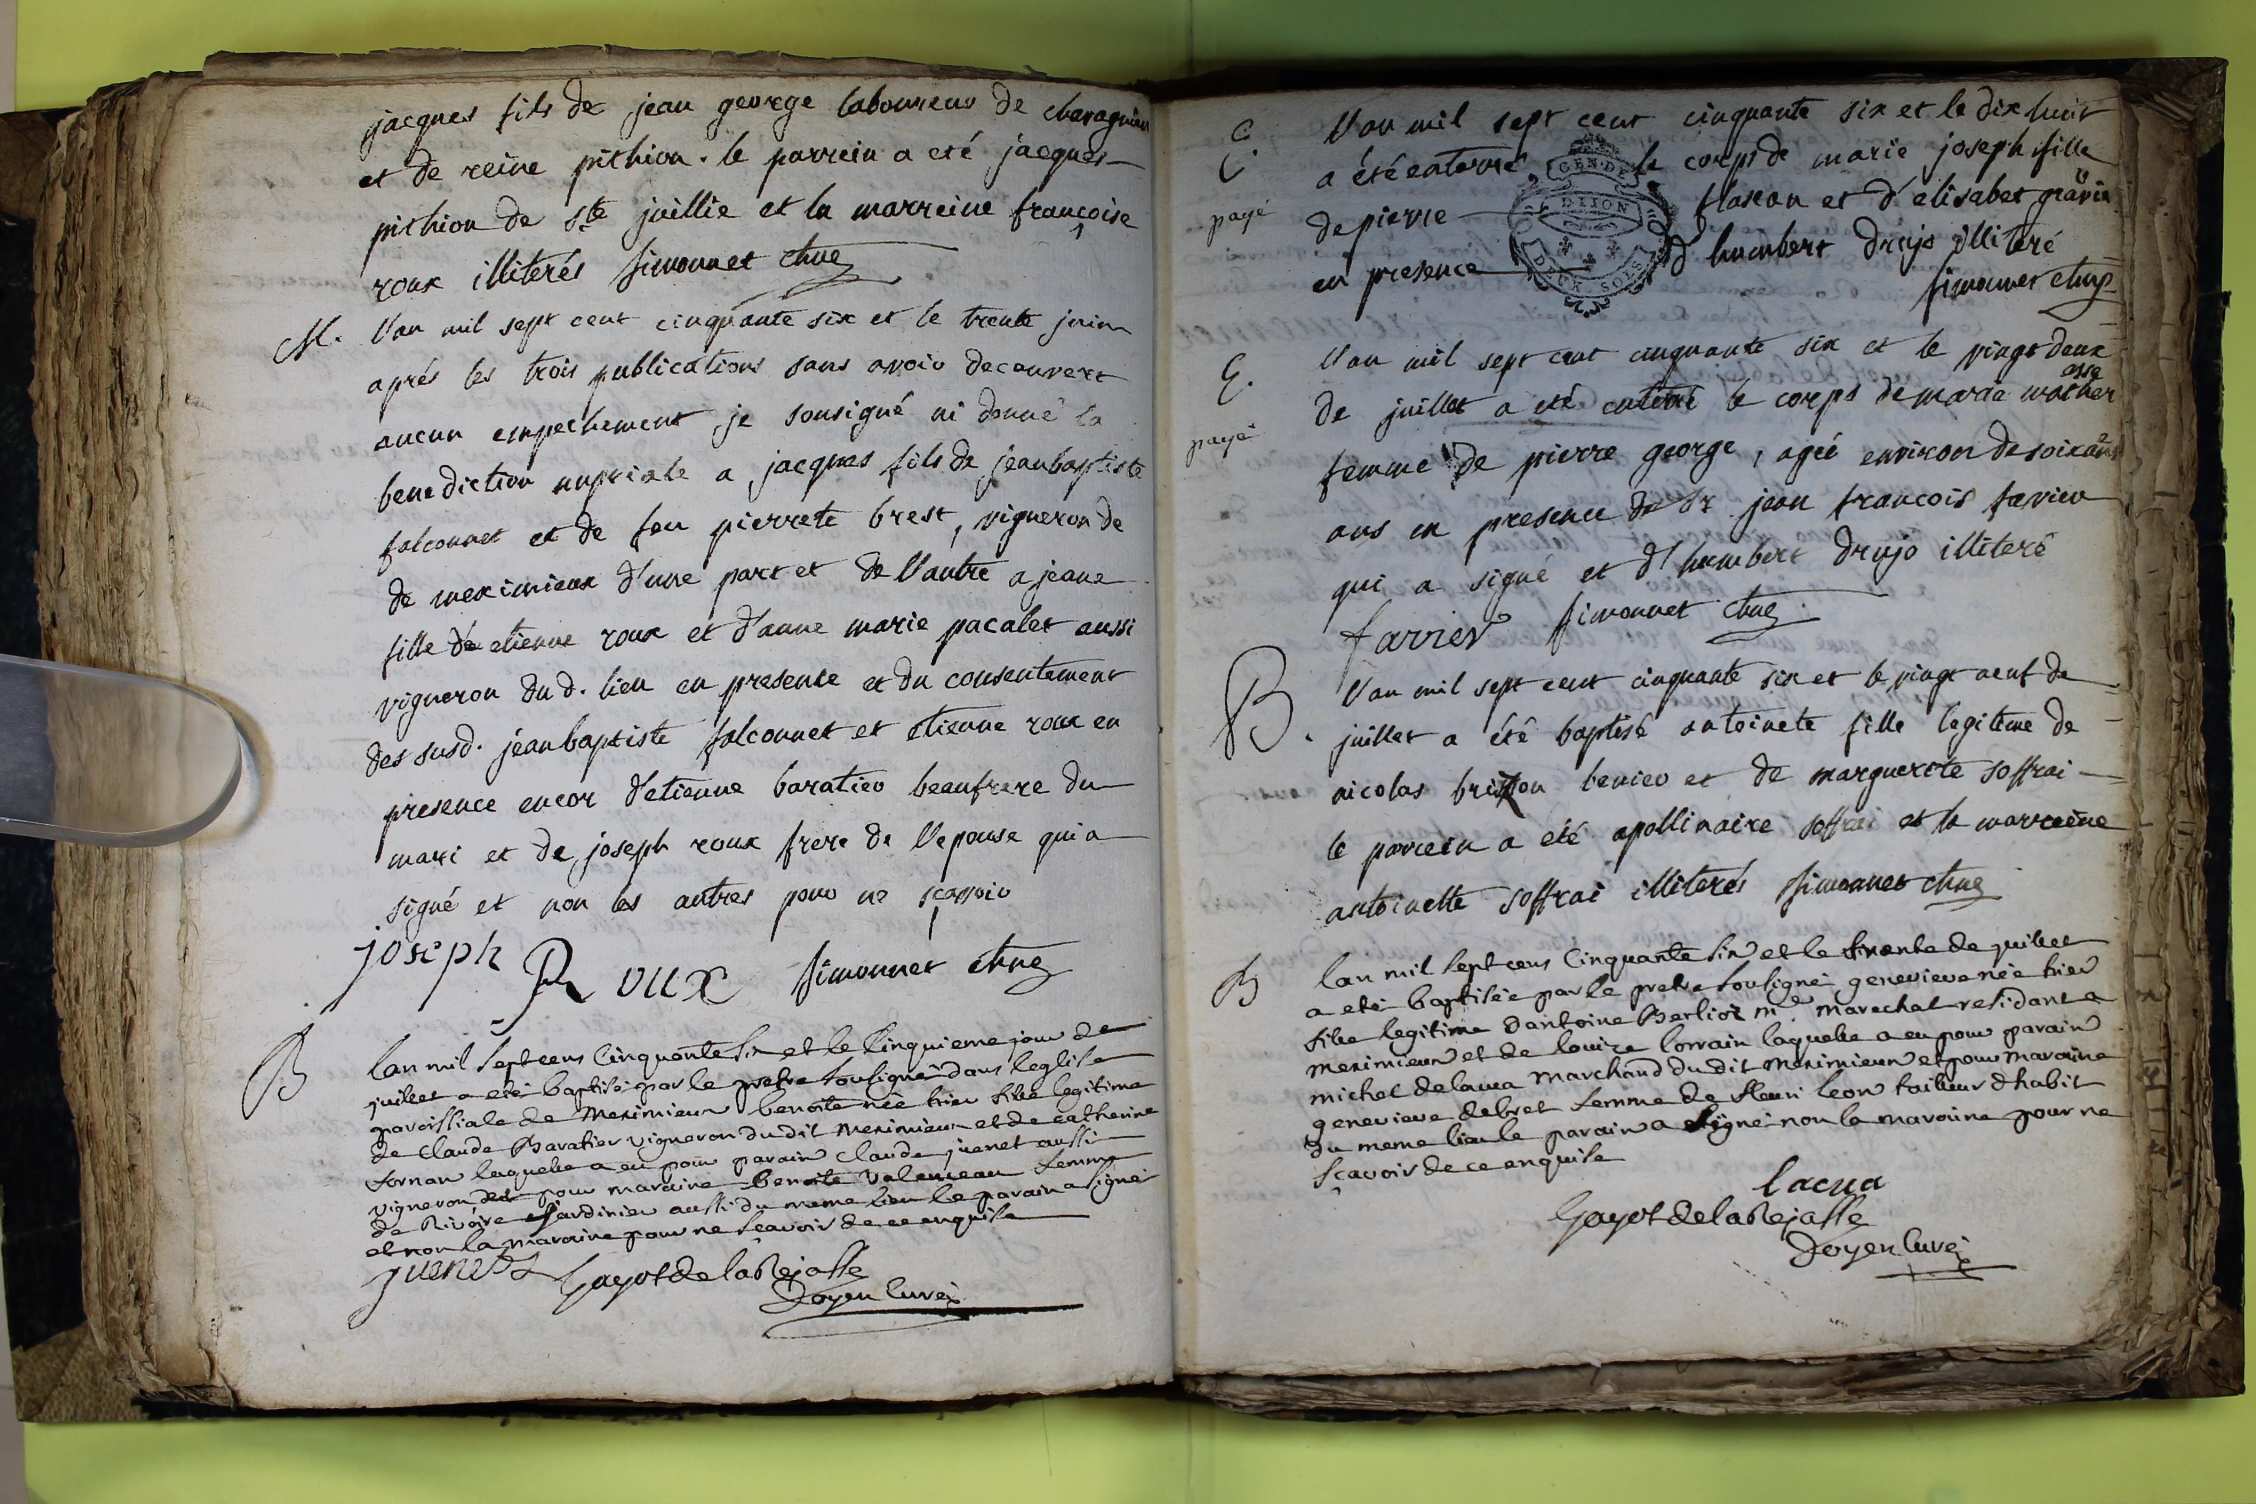 jacques fils de jean george laboureur de charagnieu
et de reine pithion. le parrein a eté jacques
pithion de ste juillie et la marreine françoise
roux illiterés Simonnet chne
M. l'an mil sept cent cinquante six et le trente juin
aprés les trois publications sans avoir decouvert
aucun empechement je sousigné ai donné la
benediction nuptiale a jacques fils de jean baptiste
falconnet et de feu pierrete brest, vigneron de
de meximieux d'une part et de l'autre a jeane
fille de etienne roux et d'anne marie pacalet aussi
vigneron du d. lieu en presence et du consentement
des susd. jean baptiste falconnet et etienne roux en
presence encor d'etienne baratier beaufrere du
mari et de joseph roux frere de l'epouse qui a
signé et non les autres pour ne sçavoir
joseph Roux Simonnet chne
B lan mil sept cens cinquante six et le Cinquieme jour de
juillet a eté baptisé par le pretre sousigné dans leglise
paroissiale de Meximieux benoite née hier fille legitime
de Claude Baratier vigneron du dit Meximieux et de catherine
fornan laquelle a eu pour parain Claude juenet aussi
vigneron et pour maraine benoite femme
de Rivoire jardinier aussi du meme lieu le parain a signé
et non la maraine pour ne sçavoir de ce enquise
juenet Gayot de la Rejasse
Doyen Curé
E. l'an mil sept cent cinquante six et le dix huit
payé a été enterré le corps de marie joseph fille
de pierre flaxan et d'elisabet
en presence d'humbert drujo illiteré
Simonnet chne
GEN. DE DIJON
DEUX SOLS
E. l'an mil sept cent cinquante six et le vingt deux
payé de juillet a eté enterré le corps de marie
femme de pierre george, agée environ de soixante
ans en presence de Sr jean francois favier
qui a signé et d'humbert drujo illiteré
favier Simonnet chne
B. l'an mil sept cent cinquante six et le vingt neuf de
juillet a été baptisé antoinete fille legitime de
nicolas briston benier et de marguerite soffrai
le parrein a été apollinaire soffrai et la marreine
antoinette soffrai illiterés Simonnet chne
B lan mil sept cens Cinquante six et le trente de juillet
a eté baptisée par le pretre sousigné genevieve née hier
fille legitime dantoine Berlioz me marechal residant a
meximieux et de louize lorrain laquelle a eu pour parain
michel delacua marchand du dit Meximieux et pour maraine
genevieve debret femme de fleuri leon tailleur dhabit
du meme lieu le parain a signé non la maraine pour ne
sçavoir de ce enquise
lacua
Gayot de la Rejasse
Doyen Curé